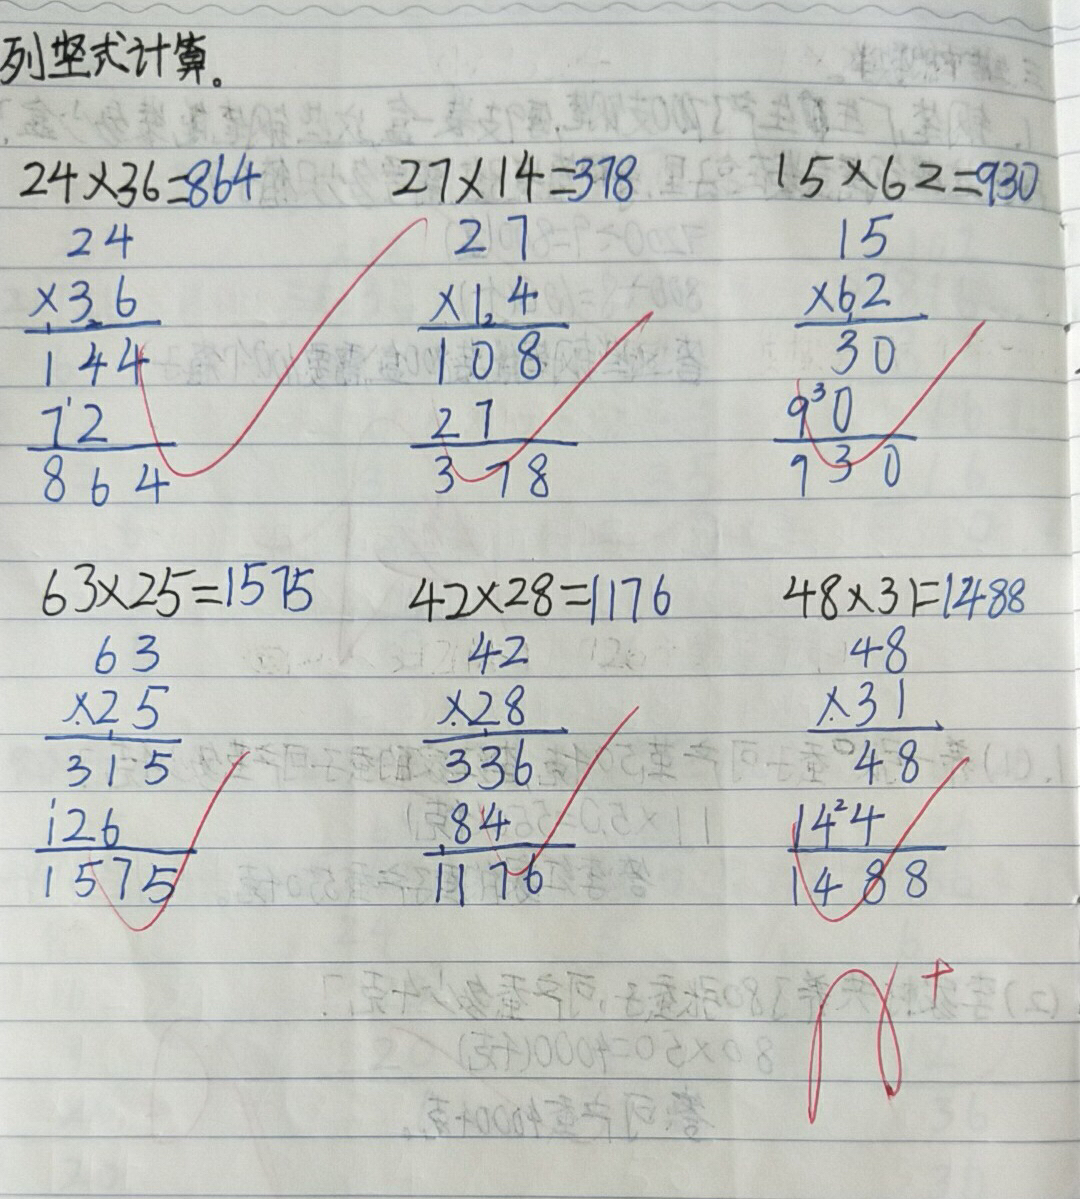 列竖式计算。
24×36=864 27×14=378 15×62=930
24 27 15
×36 ×14 ×62
144 108 30
72 27 90
864 378 930
63×25=1575 42×28=1176 48×31=1488
63 42 48
×25 ×28 ×31
315 336 48
126 84 144
1575 1176 1488